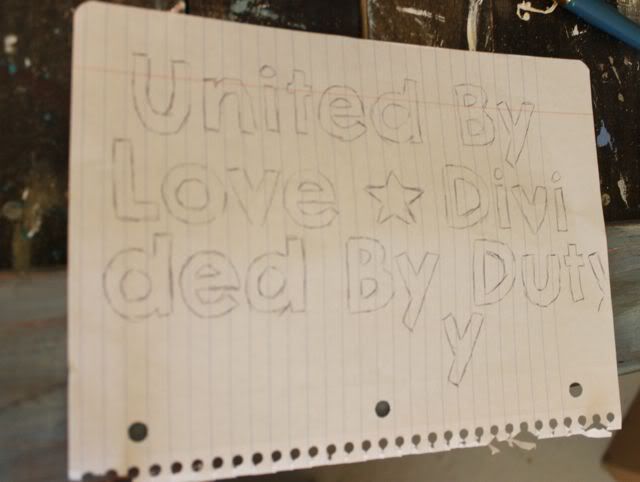 United By
Love ☆ Divi
ded By Duty
y